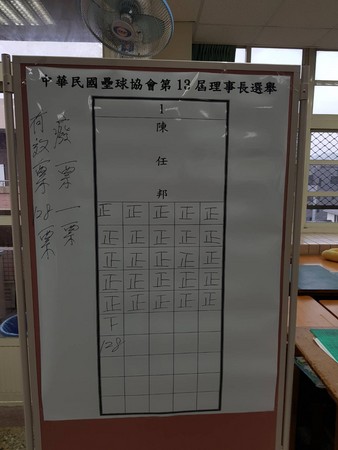 中華民國壘球協會第13屆理事長選舉
1
陳任邦
正正正正正
正正正正正
正正正正正
正正正正正
正正正正正
下
128
廢票一票
有效票128票